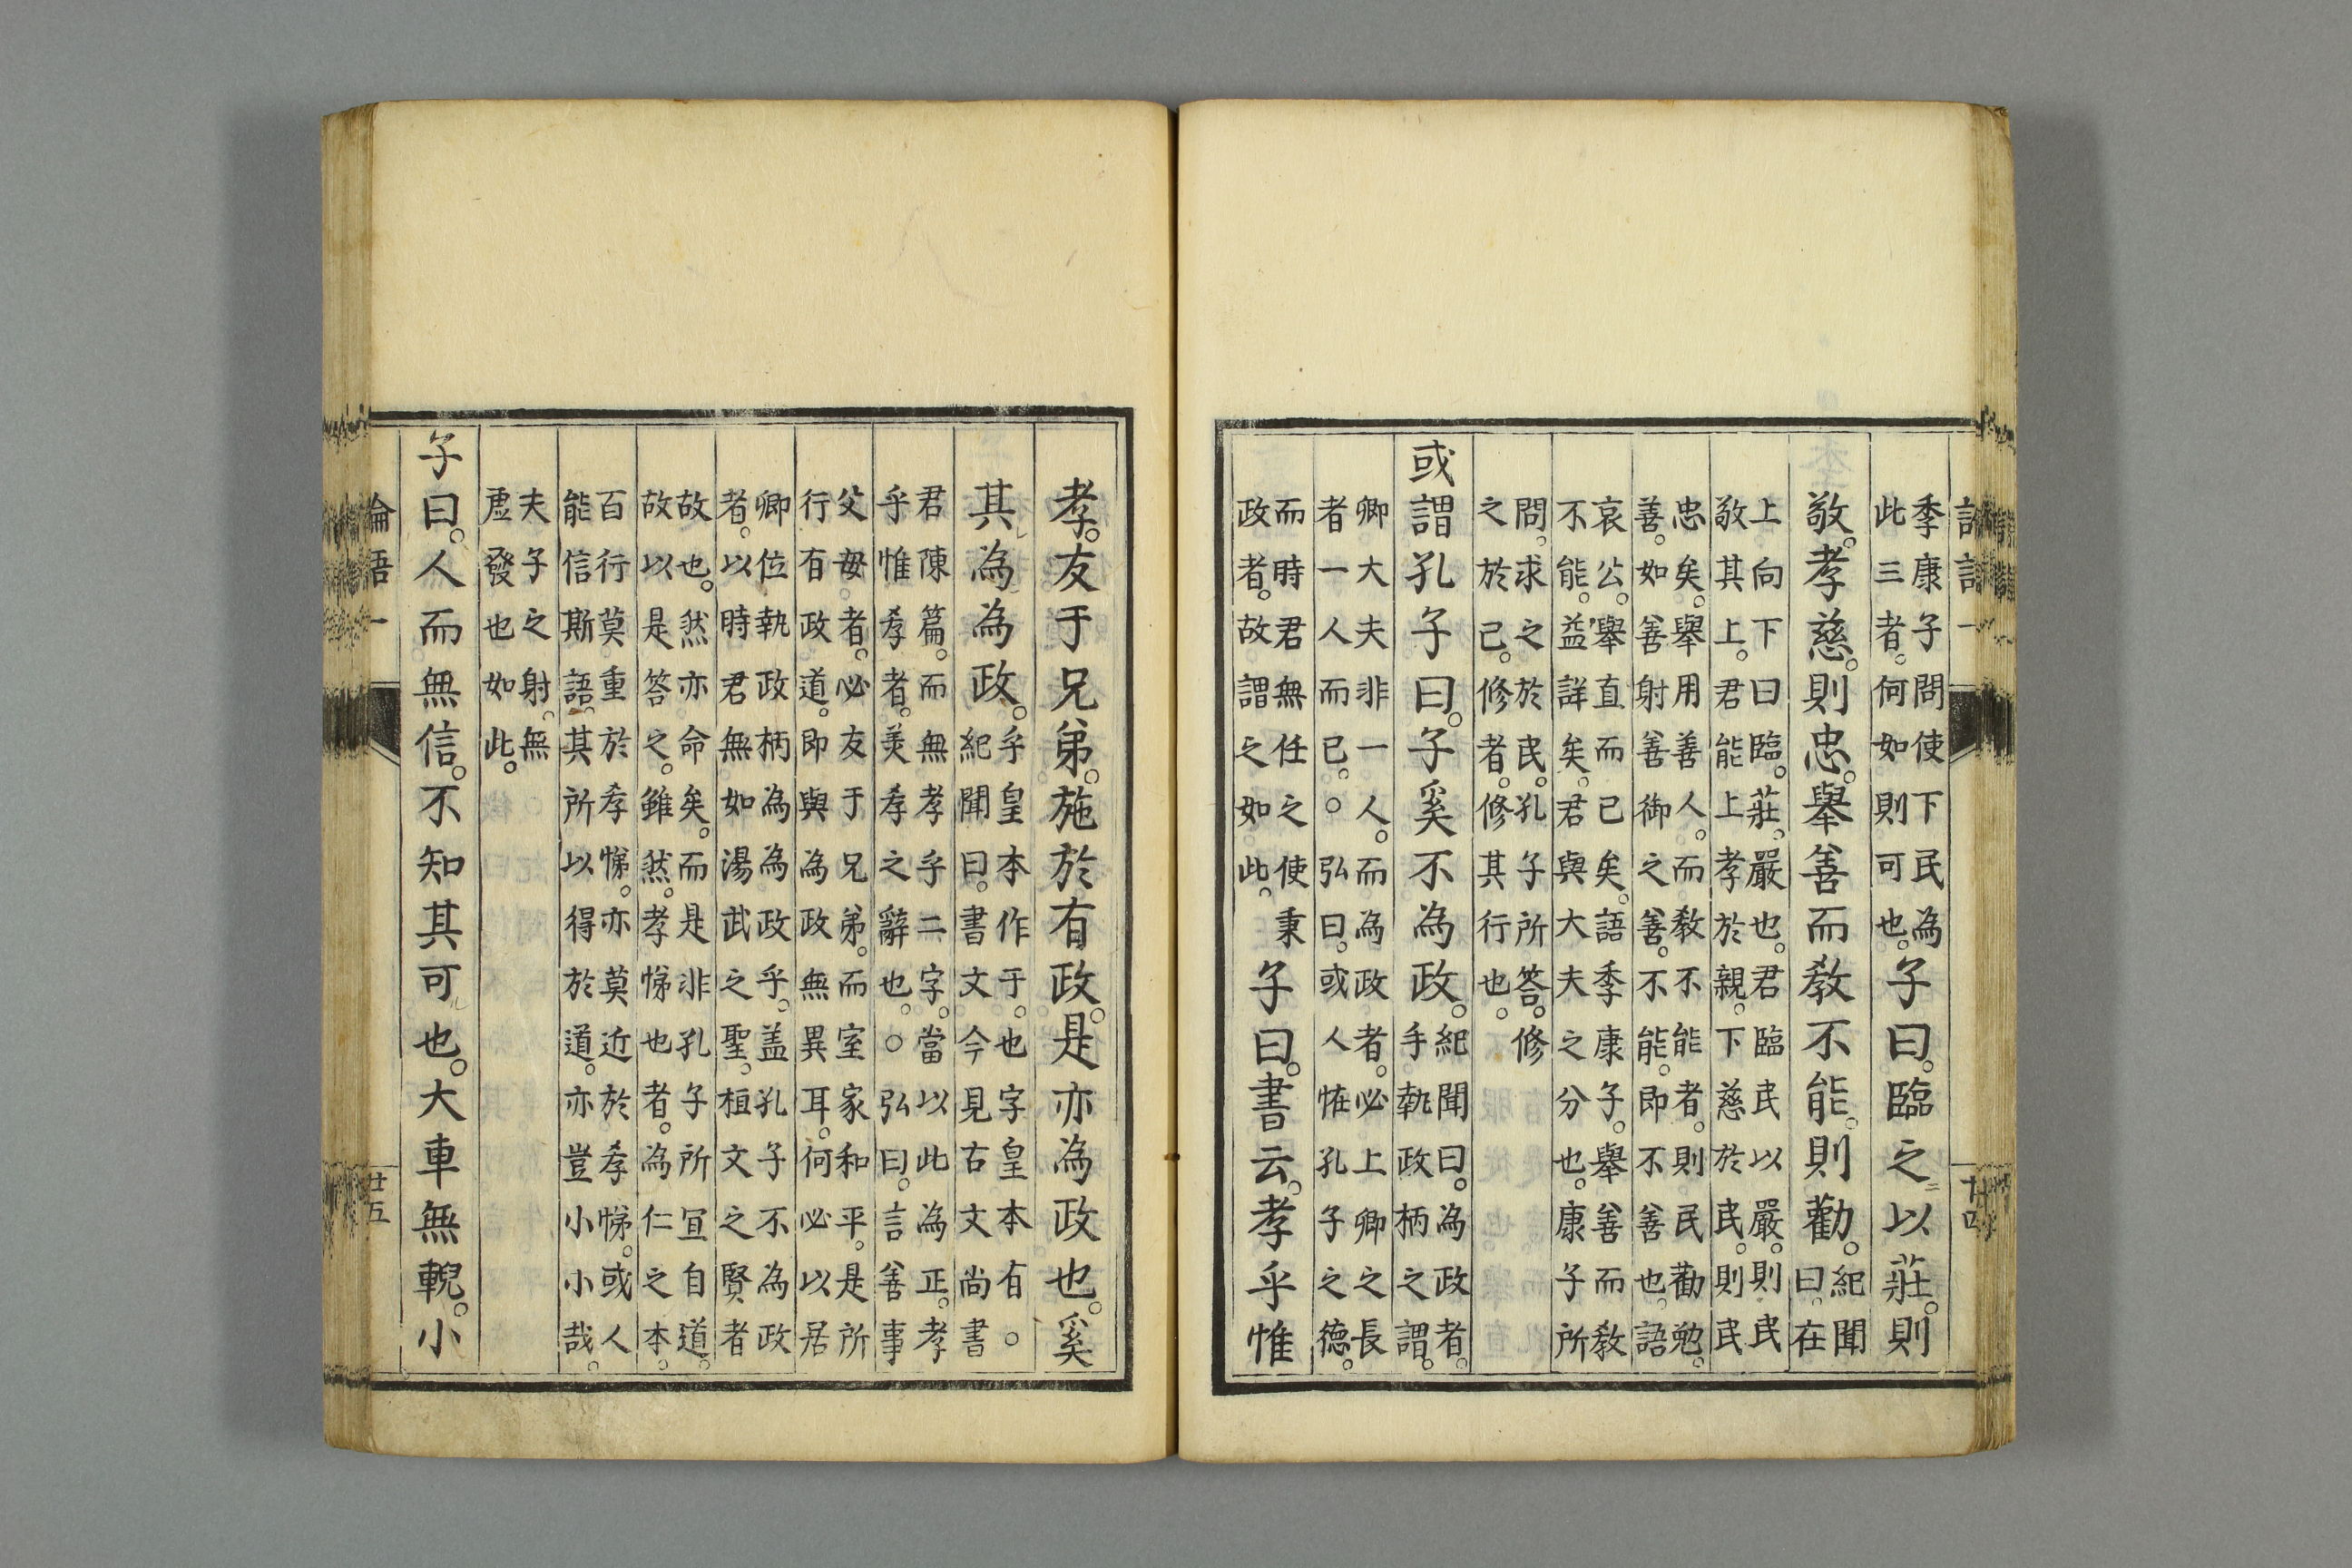 季康子問使下民為
此三者。何如則可也。
子曰。臨之以莊。則
敬。孝慈。則忠。舉善而教不能。則勸。
紀聞
曰。在
上向下曰臨。莊。嚴也。君臨民以嚴。則民
敬其上。君能上孝於親。下慈於民。則民
忠矣。舉用善人。而教不能者。則民勸勉。
善。如善射善御之善。不能。即不善也。語
哀公。舉直而已矣。語季康子。舉善而教
不能。益詳矣。君與大夫之分也。康子所
問。求之於民。孔子所答。修
之於己。修者。修其行也。
或謂孔子曰。子奚不為政。
紀聞曰。為政者。
手執政柄之謂。
卿大夫非一人。而為政者。必上卿之長
者一人而已。○弘曰。或人恠孔子之德。
而時君無任之使秉
政者。故謂之如此。
子曰。書云。孝乎惟
孝。友于兄弟。施於有政。是亦為政也。奚
其為為政。
乎皇本作于。也字皇本有。○
紀聞曰。書文今見古文尚書
君陳篇。而無孝乎二字。當以此為正。孝
乎惟孝者。美孝之辭也。○弘曰。言善事
父母者。必友于兄弟。而室家和平。是所
行有政道。即與為政無異耳。何必以居
卿位執政柄為為政乎。盖孔子不為政
者。以時君無如湯武之聖。桓文之賢者
故也。然亦命矣。而是非孔子所宜自道。
故以是答之。雖然。孝悌也者。為仁之本。
百行莫重於孝悌。亦莫近於孝悌。或人
能信斯語。其所以得於道。亦豈小小哉。
夫子之射。無
虛發也如此。
子曰。人而無信。不知其可也。大車無輗。小
論語一
廿五